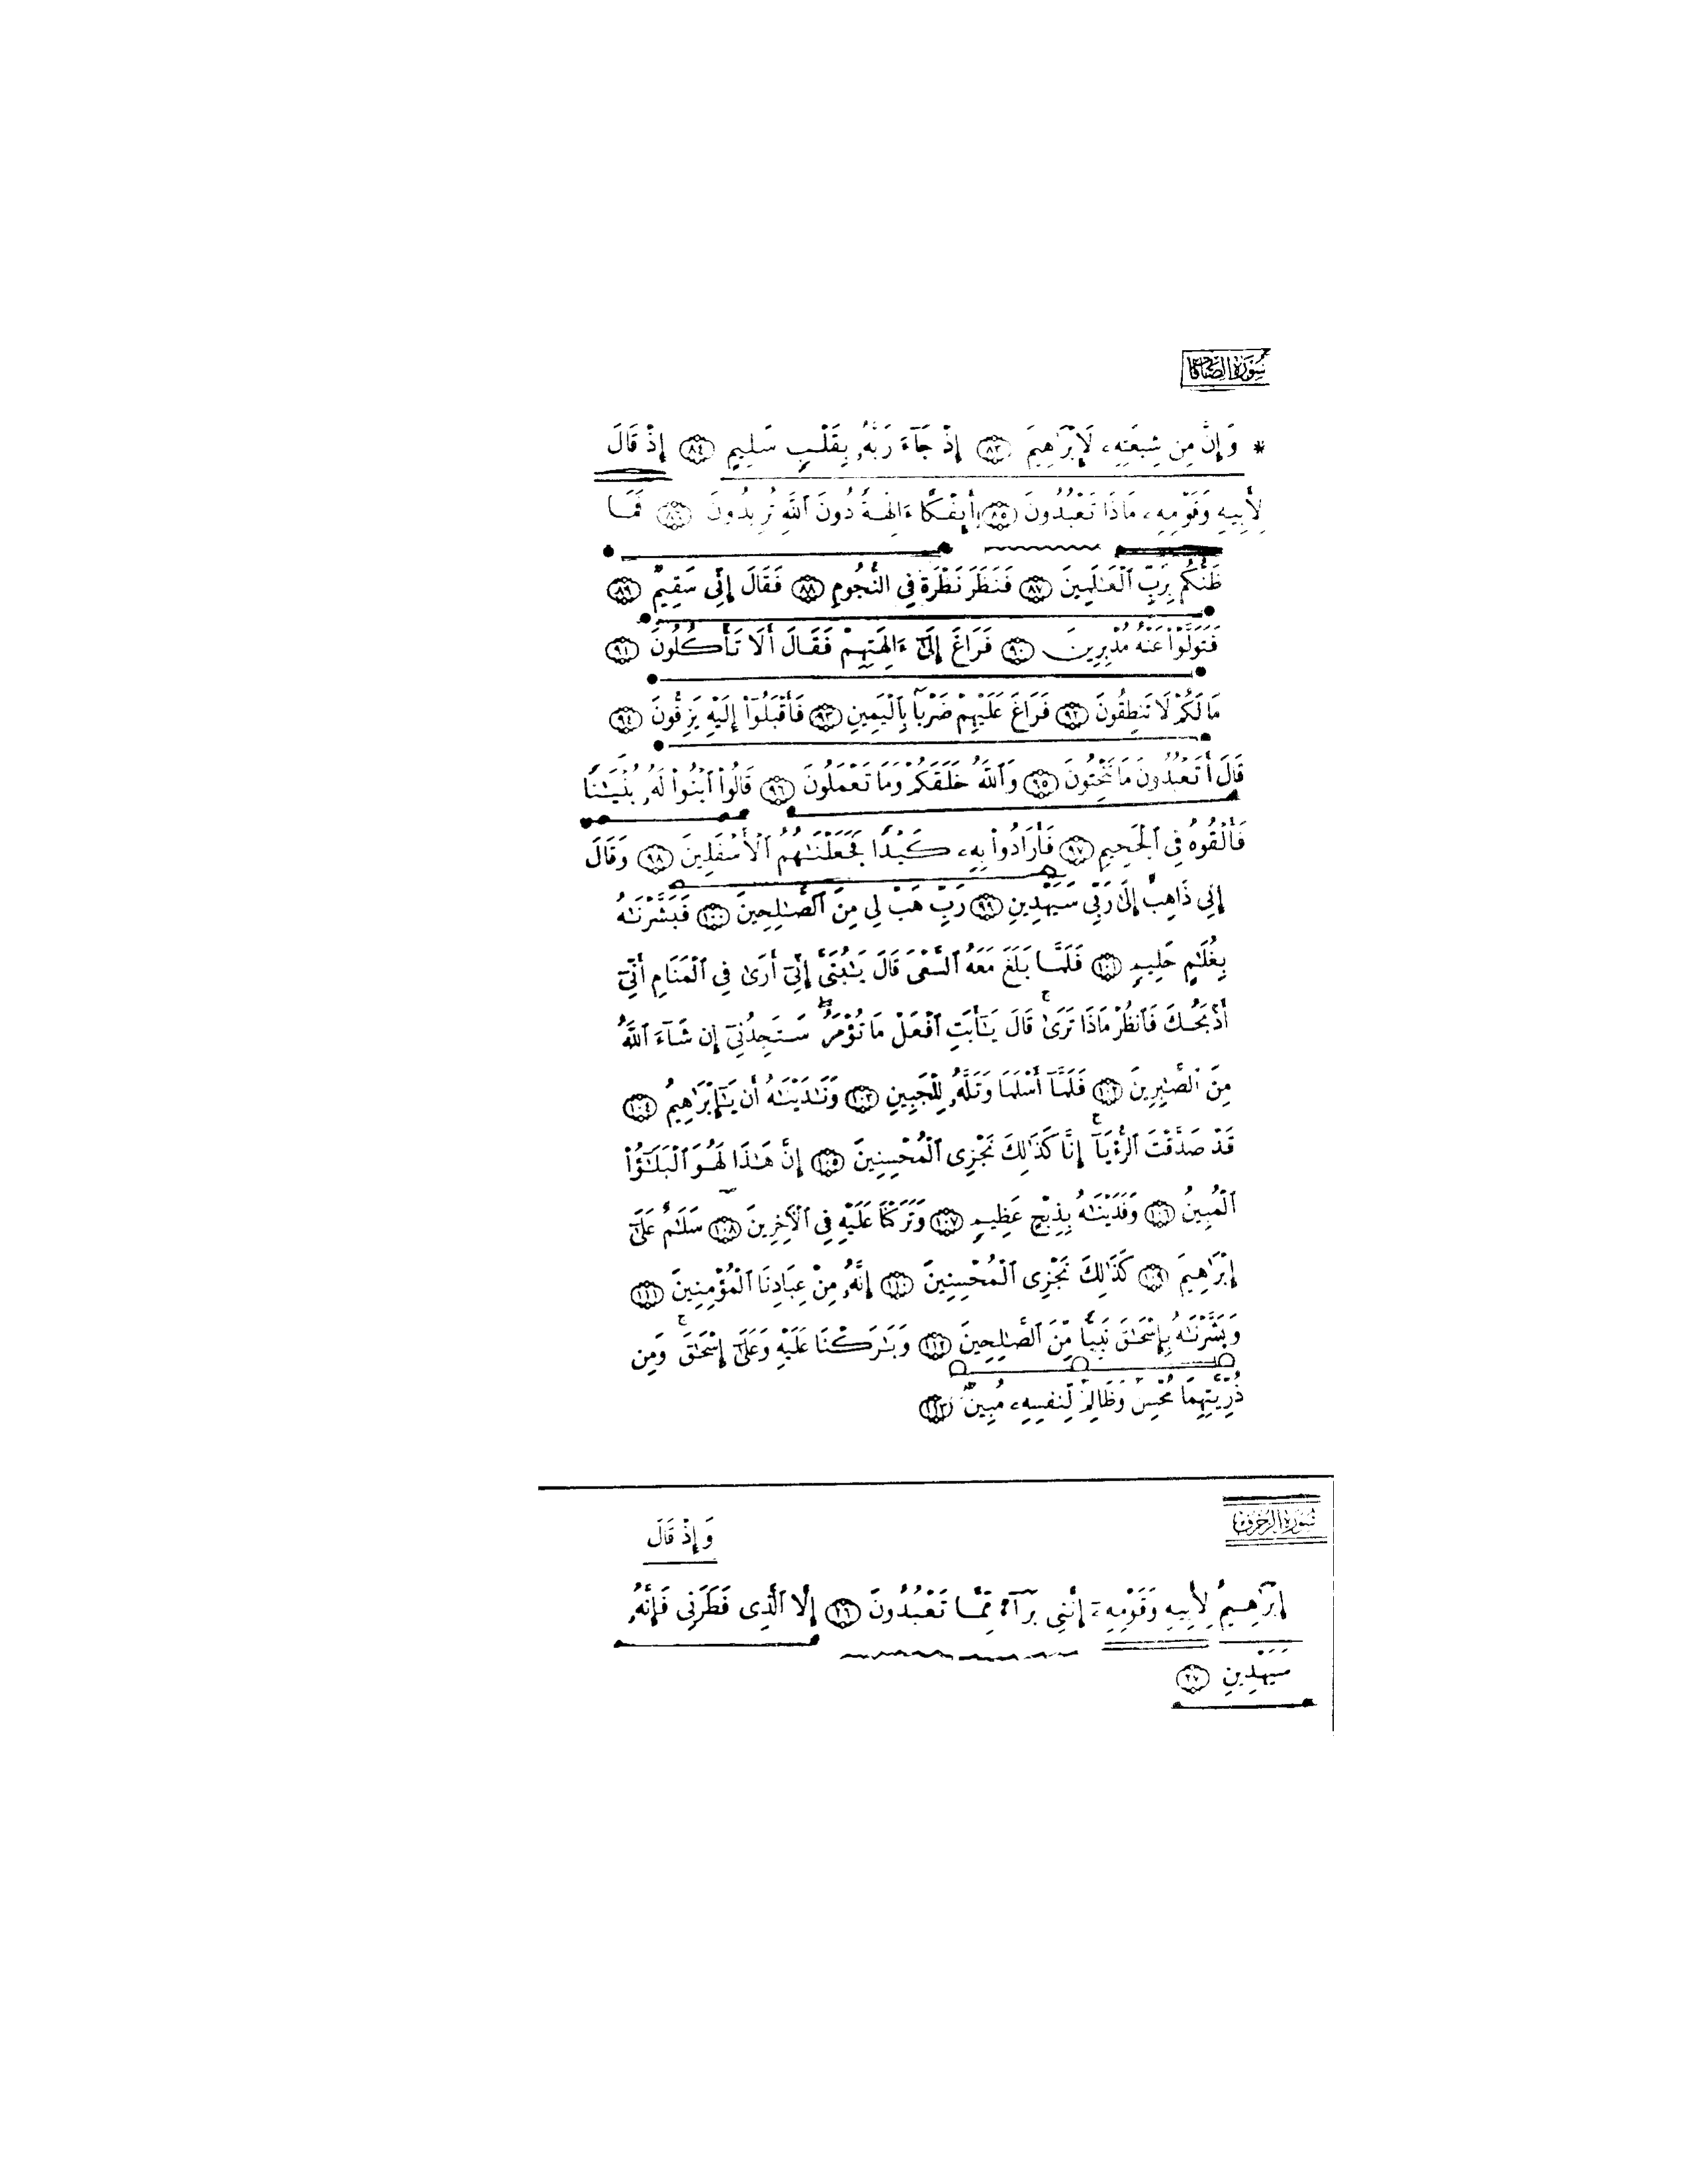 سورة الصافات
* وَإِنَّ مِن شِيعَتِهِۦ لَإِبْرَٰهِيمَ ٨٣ إِذْ جَآءَ رَبَّهُۥ بِقَلْبٍ سَلِيمٍ ٨٤ إِذْ قَالَ
لِأَبِيهِ وَقَوْمِهِۦ مَاذَا تَعْبُدُونَ ٨٥ أَئِفْكًا ءَالِهَةً دُونَ ٱللَّهِ تُرِيدُونَ ٨٦ فَمَا
ظَنُّكُم بِرَبِّ ٱلْعَٰلَمِينَ ٨٧ فَنَظَرَ نَظْرَةً فِى ٱلنُّجُومِ ٨٨ فَقَالَ إِنِّى سَقِيمٌ ٨٩
فَتَوَلَّوْا۟ عَنْهُ مُدْبِرِينَ ٩٠ فَرَاغَ إِلَىٰٓ ءَالِهَتِهِمْ فَقَالَ أَلَا تَأْكُلُونَ ٩١
مَا لَكُمْ لَا تَنطِقُونَ ٩٢ فَرَاغَ عَلَيْهِمْ ضَرْبًۢا بِٱلْيَمِينِ ٩٣ فَأَقْبَلُوٓا۟ إِلَيْهِ يَزِفُّونَ ٩٤
قَالَ أَتَعْبُدُونَ مَا تَنْحِتُونَ ٩٥ وَٱللَّهُ خَلَقَكُمْ وَمَا تَعْمَلُونَ ٩٦ قَالُوا۟ ٱبْنُوا۟ لَهُۥ بُنْيَٰنًا
فَأَلْقُوهُ فِى ٱلْجَحِيمِ ٩٧ فَأَرَادُوا۟ بِهِۦ كَيْدًا فَجَعَلْنَٰهُمُ ٱلْأَسْفَلِينَ ٩٨ وَقَالَ
إِنِّى ذَاهِبٌ إِلَىٰ رَبِّى سَيَهْدِينِ ٩٩ رَبِّ هَبْ لِى مِنَ ٱلصَّٰلِحِينَ ١٠٠ فَبَشَّرْنَٰهُ
بِغُلَٰمٍ حَلِيمٍ ١٠١ فَلَمَّا بَلَغَ مَعَهُ ٱلسَّعْىَ قَالَ يَٰبُنَىَّ إِنِّىٓ أَرَىٰ فِى ٱلْمَنَامِ أَنِّىٓ
أَذْبَحُكَ فَٱنظُرْ مَاذَا تَرَىٰ ۚ قَالَ يَٰٓأَبَتِ ٱفْعَلْ مَا تُؤْمَرُ ۖ سَتَجِدُنِىٓ إِن شَآءَ ٱللَّهُ
مِنَ ٱلصَّٰبِرِينَ ١٠٢ فَلَمَّآ أَسْلَمَا وَتَلَّهُۥ لِلْجَبِينِ ١٠٣ وَنَٰدَيْنَٰهُ أَن يَٰٓإِبْرَٰهِيمُ ١٠٤
قَدْ صَدَّقْتَ ٱلرُّءْيَآ ۚ إِنَّا كَذَٰلِكَ نَجْزِى ٱلْمُحْسِنِينَ ١٠٥ إِنَّ هَٰذَا لَهُوَ ٱلْبَلَٰٓؤُا۟
ٱلْمُبِينُ ١٠٦ وَفَدَيْنَٰهُ بِذِبْحٍ عَظِيمٍ ١٠٧ وَتَرَكْنَا عَلَيْهِ فِى ٱلْءَاخِرِينَ ١٠٨ سَلَٰمٌ عَلَىٰٓ
إِبْرَٰهِيمَ ١٠٩ كَذَٰلِكَ نَجْزِى ٱلْمُحْسِنِينَ ١١٠ إِنَّهُۥ مِنْ عِبَادِنَا ٱلْمُؤْمِنِينَ ١١١
وَبَشَّرْنَٰهُ بِإِسْحَٰقَ نَبِيًّا مِّنَ ٱلصَّٰلِحِينَ ١١٢ وَبَٰرَكْنَا عَلَيْهِ وَعَلَىٰٓ إِسْحَٰقَ ۚ وَمِن
ذُرِّيَّتِهِمَا مُحْسِنٌ وَظَالِمٌ لِّنَفْسِهِۦ مُبِينٌ ١١٣
سورة الزخرف
وَإِذْ قَالَ
إِبْرَٰهِيمُ لِأَبِيهِ وَقَوْمِهِۦٓ إِنَّنِى بَرَآءٌ مِّمَّا تَعْبُدُونَ ٢٦ إِلَّا ٱلَّذِى فَطَرَنِى فَإِنَّهُۥ
سَيَهْدِينِ ٢٧